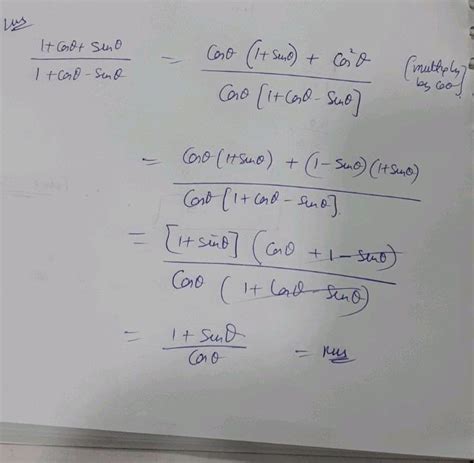 LHS
(1 + cosθ + sinθ) / (1 + cosθ - sinθ) = (cosθ (1 + sinθ) + cos²θ) / (cosθ [1 + cosθ - sinθ]) [multiply by cosθ]
= (cosθ (1 + sinθ) + (1 - sinθ)(1 + sinθ)) / (cosθ [1 + cosθ - sinθ])
= ([1 + sinθ] (cosθ + 1 - sinθ)) / (cosθ (1 + cosθ - sinθ))
= (1 + sinθ) / cosθ = RHS